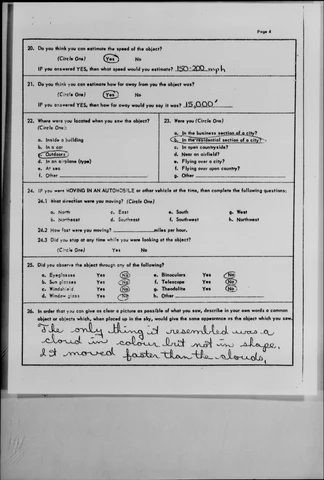 Page 4
20. Do you think you can estimate the speed of the object?
(Circle One) Yes No
IF you answered YES, then what speed would you estimate? 150-200 mph
21. Do you think you can estimate how far away from you the object was?
(Circle One) Yes No
IF you answered YES, then how far away would you say it was? 15,000'
22. Where were you located when you saw the object?
(Circle One):
a. Inside a building
b. In a car
c. Outdoors
d. In an airplane (type)
e. At sea
f. Other
23. Were you (Circle One)
a. In the business section of a city?
b. In the residential section of a city?
c. In open countryside?
d. Near an airfield?
e. Flying over a city?
f. Flying over open country?
g. Other
24. IF you were MOVING IN AN AUTOMOBILE or other vehicle at the time, then complete the following questions:
24.1 What direction were you moving? (Circle One)
a. North c. East e. South g. West
b. Northeast d. Southeast f. Southwest h. Northwest
24.2 How fast were you moving? miles per hour.
24.3 Did you stop at any time while you were looking at the object?
(Circle One) Yes No
25. Did you observe the object through any of the following?
a. Eyeglasses Yes No e. Binoculars Yes No
b. Sun glasses Yes No f. Telescope Yes No
c. Windshield Yes No g. Theodolite Yes No
d. Window glass Yes No h. Other
26. In order that you can give as clear a picture as possible of what you saw, describe in your own words a common
object or objects which, when placed up in the sky, would give the same appearance as the object which you saw.
The only thing it resembled was a
cloud in colour but not in shape.
It moved faster than the clouds.